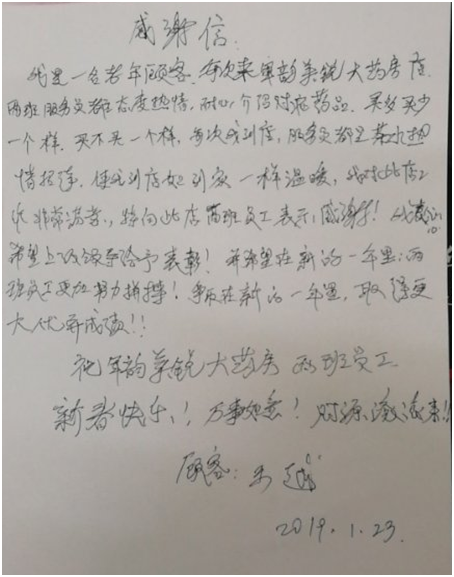 感谢信:
我是一名老年顾客. 每次来 美锐大药房店
两班服务员都态度热情, 耐心介绍对症药品. 买多买少
一个样. 买不买一个样, 每次我到店, 服务员都是茶水热
情招待. 使我到店如到家一样温暖, 我对此店
非常满意, 特向此店两班员工表示感谢! 我
希望上级领导给予表彰! 并希望在新的一年里: 两
班员工更加努力拼搏! 争取在新的一年里, 取得更
大优异成绩!!
祝 美锐大药房 两班员工
新春快乐!! 万事如意! 财源滚滚来!!
顾客: 越
2019. 1. 23.